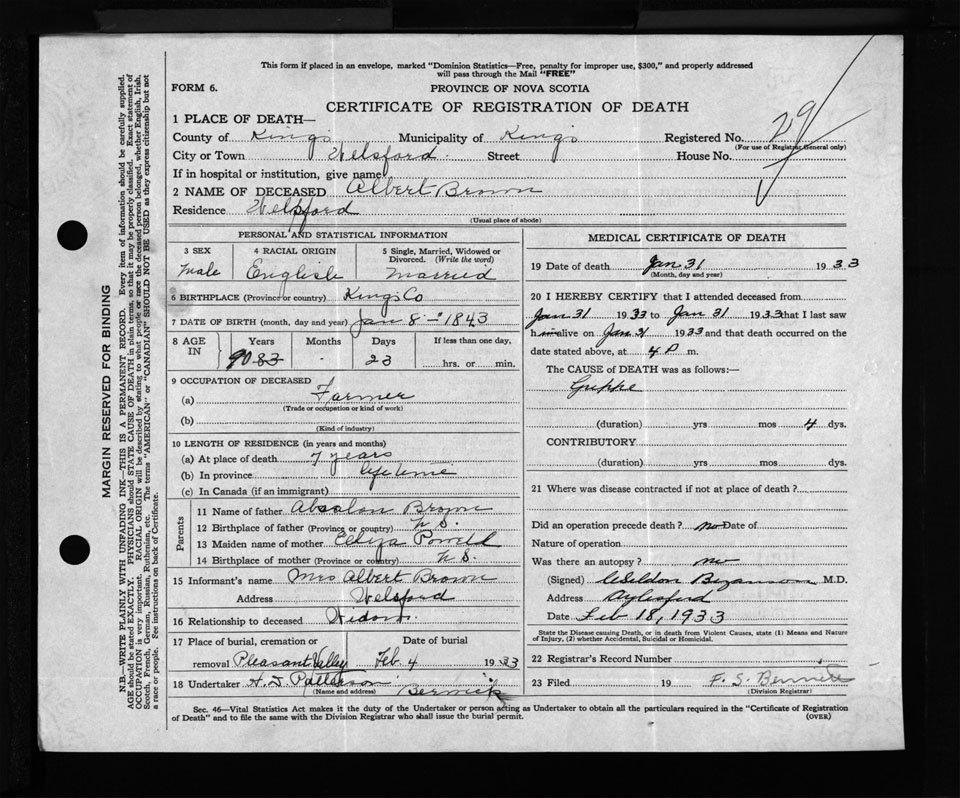 This form if placed in an envelope, marked "Dominion Statistics—Free, penalty for improper use, $300," and properly addressed
will pass through the Mail "FREE"
FORM 6.
PROVINCE OF NOVA SCOTIA
CERTIFICATE OF REGISTRATION OF DEATH
1 PLACE OF DEATH—
County of Kings Municipality of Kings Registered No. 29
(For use of Registrar General only)
City or Town Welsford Street House No.
If in hospital or institution, give name
2 NAME OF DECEASED Albert Brown
Residence Welsford
(Usual place of abode)
PERSONAL AND STATISTICAL INFORMATION
3 SEX 4 RACIAL ORIGIN 5 Single, Married, Widowed or Divorced. (Write the word)
Male English Married
6 BIRTHPLACE (Province or country) Kings Co
7 DATE OF BIRTH (month, day and year) Jan 8 - 1843
8 AGE IN Years Months Days If less than one day,
90 83 23 hrs. or min.
9 OCCUPATION OF DECEASED
(a) Farmer
(Trade or occupation or kind of work)
(b)
(Kind of industry)
10 LENGTH OF RESIDENCE (in years and months)
(a) At place of death 7 years
(b) In province life time
(c) In Canada (if an immigrant)
Parents
11 Name of father Absolon Brown
12 Birthplace of father (Province or country) N S.
13 Maiden name of mother Eliza Powell
14 Birthplace of mother (Province or country) N S
15 Informant's name Mrs Albert Brown
Address Welsford
16 Relationship to deceased Widow.
17 Place of burial, cremation or Date of burial
removal Pleasant Valley Feb. 4 1933
18 Undertaker H. S. Patterson
(Name and address) Berwick
MEDICAL CERTIFICATE OF DEATH
19 Date of death Jan 31 1933
(Month, day and year)
20 I HEREBY CERTIFY that I attended deceased from
Jan 31 1933 to Jan 31 1933 that I last saw
h im alive on Jan 31 1933 and that death occurred on
date stated above, at 4 P m.
The CAUSE of DEATH was as follows:—
Grippe
(duration) yrs mos 4 dys.
CONTRIBUTORY
(duration) yrs mos dys.
21 Where was disease contracted if not at place of death?
Did an operation precede death? no Date of
Nature of operation
Was there an autopsy? no
(Signed) Weldon Bezanson M.D.
Address Aylesford
Date Feb 18, 1933
State the Disease causing Death, or in death from Violent Causes, state (1) Means and Nature of Injury, (2) whether Accidental, Suicidal or Homicidal.
22 Registrar's Record Number
23 Filed 19 F. S. Bennett
(Division Registrar)
Sec. 46—Vital Statistics Act makes it the duty of the Undertaker or person acting as Undertaker to obtain all the particulars required in the "Certificate of Registration
of Death" and to file the same with the Division Registrar who shall issue the burial permit.
(OVER)
MARGIN RESERVED FOR BINDING
N.B.—WRITE PLAINLY WITH UNFADING INK—THIS IS A PERMANENT RECORD. Every item of information should be carefully supplied.
AGE should be stated EXACTLY. PHYSICIANS should STATE CAUSE OF DEATH in plain terms, so that it may be properly classified. Exact statement of
OCCUPATION is very important. RACIAL ORIGIN will be described by stating to what people or race the deceased person belonged, whether English, Irish,
Scotch, French, German, Russian, Ruthenian, etc. The terms "AMERICAN" or "CANADIAN" SHOULD NOT BE USED as they express citizenship but not
a race or people. See instructions on back of Certificate.